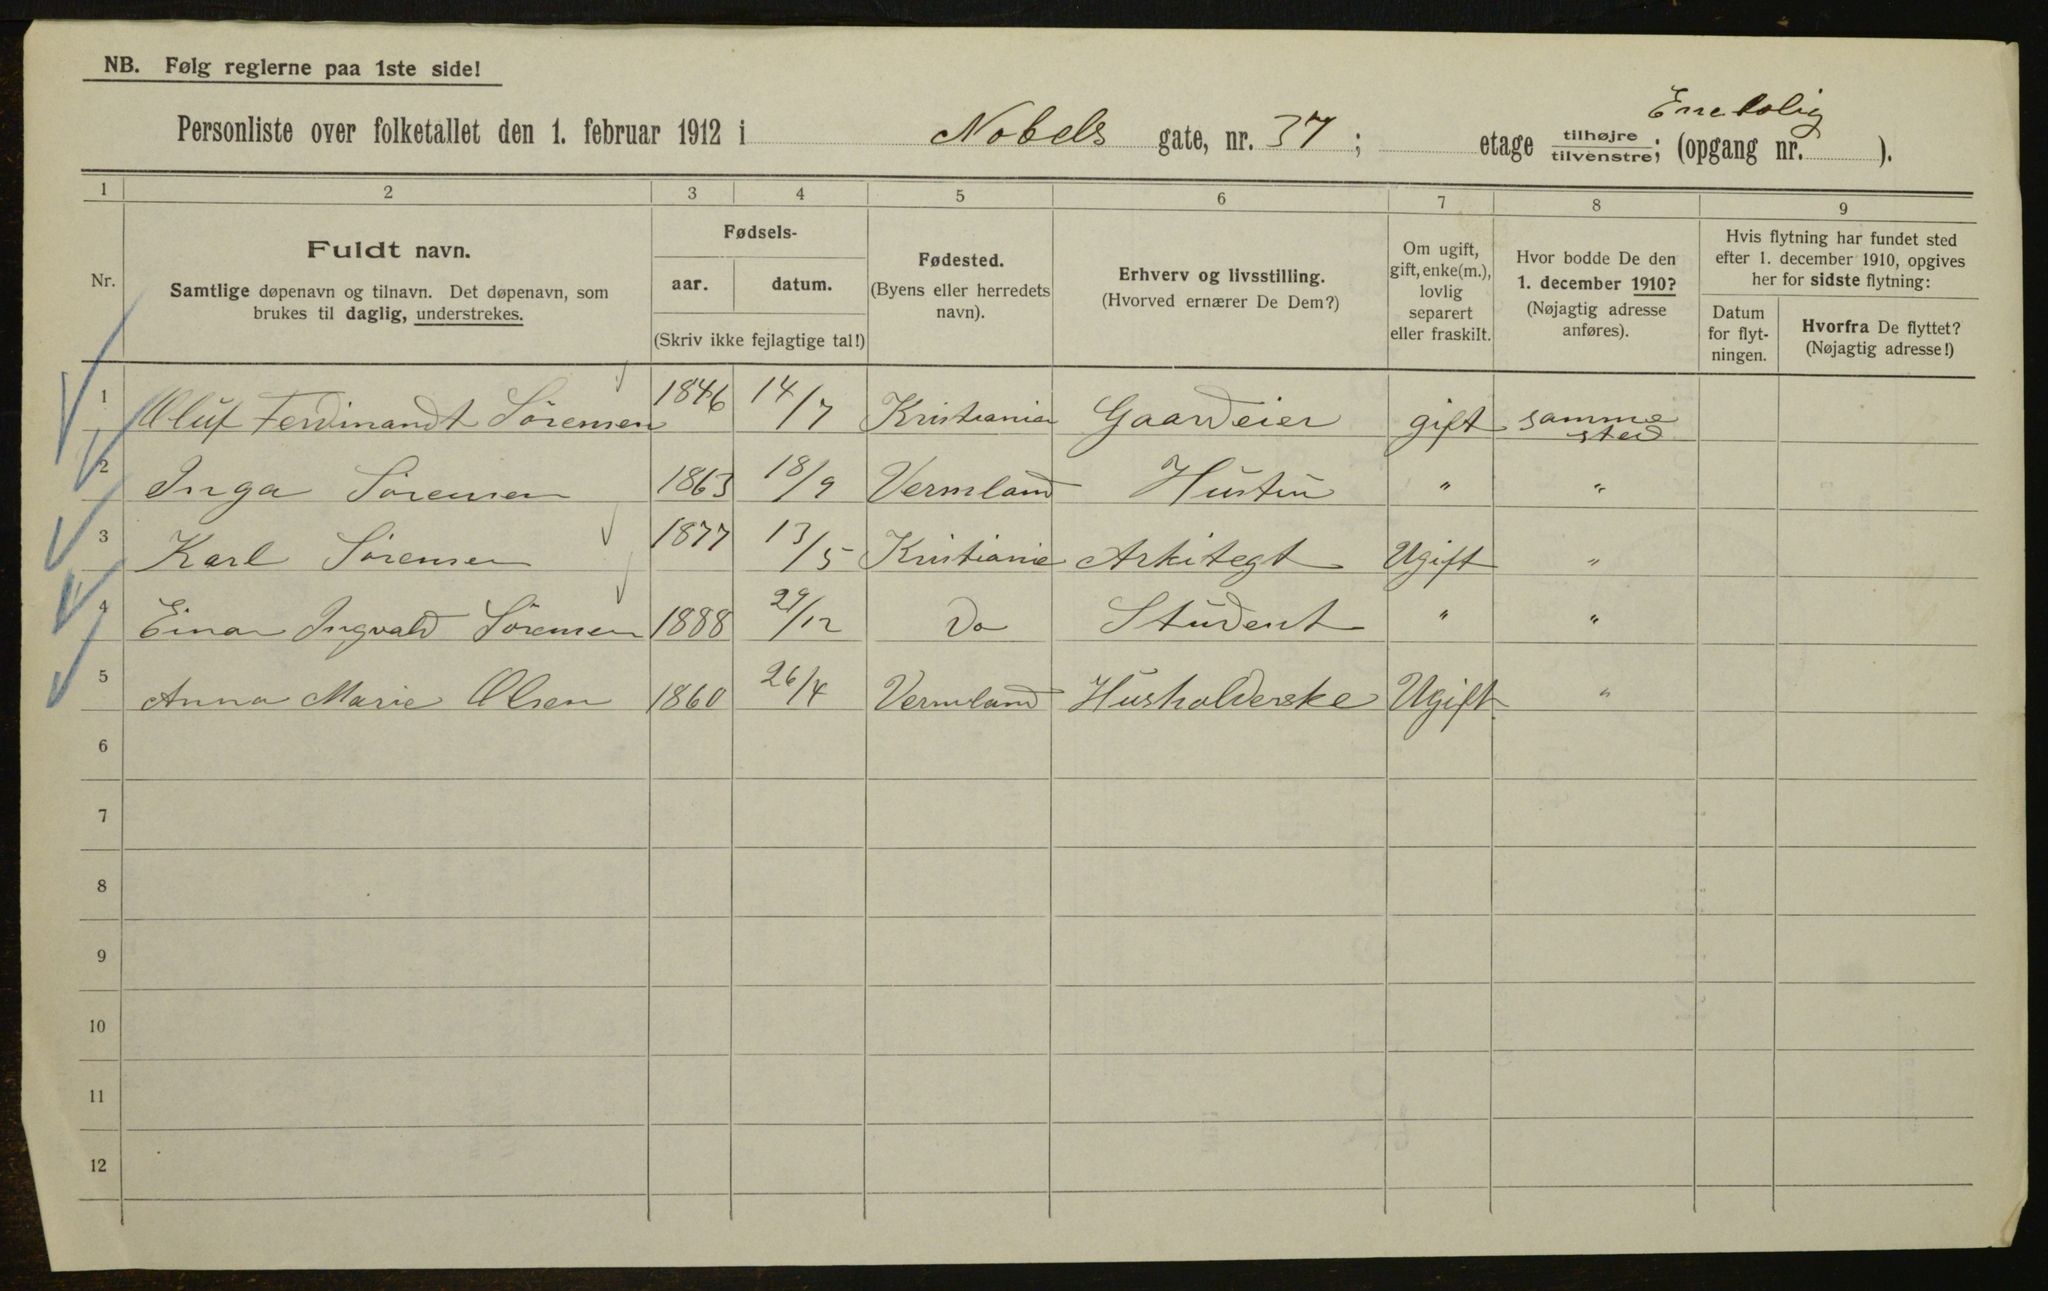 NB. Følg reglerne paa 1ste side!
Enebolig
Personliste over folketallet den 1. februar 1912 i Nobels gate, nr. 37; etage tilhøjre/tilvenstre; (opgang nr. ).
1 2 3 4 5 6 7 8 9
Nr.
Fuldt navn.
Samtlige døpenavn og tilnavn. Det døpenavn, som
brukes til daglig, understrekes.
Fødsels-
aar. datum.
(Skriv ikke fejlagtige tal!)
Fødested.
(Byens eller herredets
navn).
Erhverv og livsstilling.
(Hvorved ernærer De Dem?)
Om ugift,
gift, enke(m.),
lovlig
separert
eller fraskilt.
Hvor bodde De den
1. december 1910?
(Nøjagtig adresse
anføres).
Hvis flytning har fundet sted
efter 1. december 1910, opgives
her for sidste flytning:
Datum
for flyt-
ningen.
Hvorfra De flyttet?
(Nøjagtig adresse!)
1 Oluf Ferdinandt Sørensen 1846 14/7 Kristiania Gaardeier gift samme
sted
2 Inga Sørensen 1863 18/9 Vermland Hustru " "
3 Karl Sørensen 1877 13/5 Kristiania Arkitegt Ugift "
4 Einar Ingvald Sørensen 1888 29/12 Do Student " "
5 Anna Marie Olsen 1860 26/4 Vermland Husholderske Ugift "
6
7
8
9
10
11
12